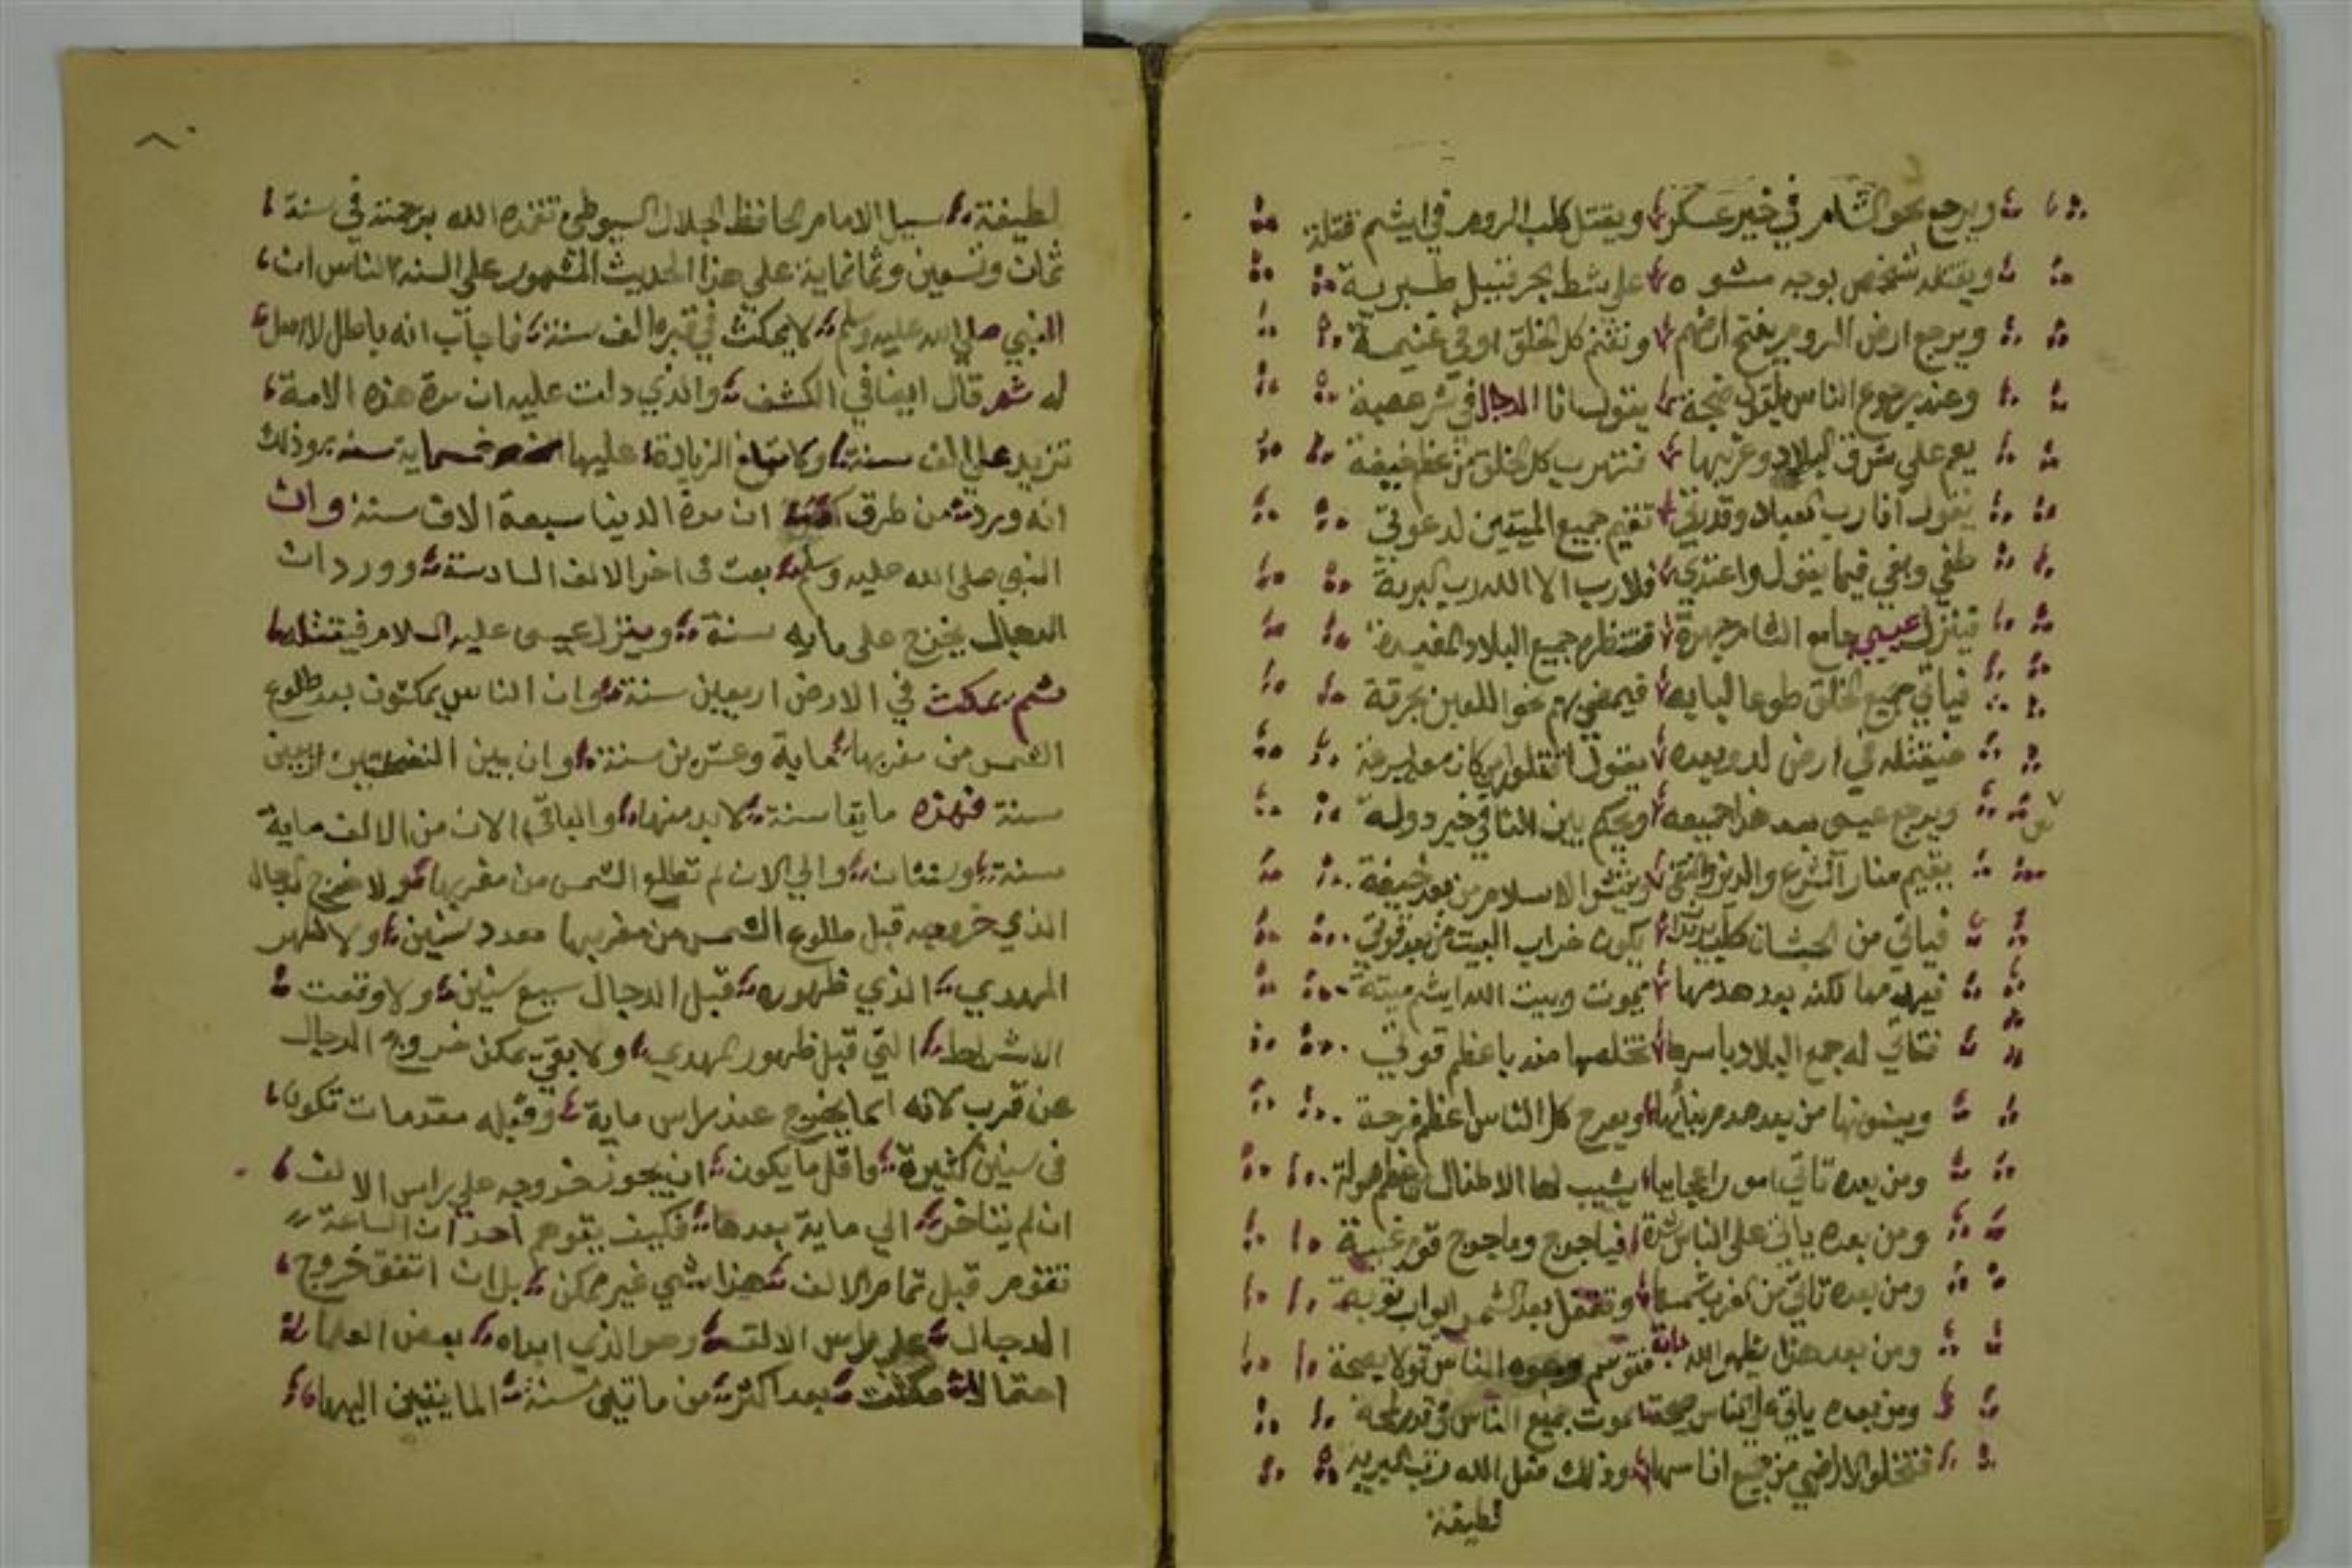 ويرجع نحو الشام في خير عسكر ويقتل كلب الروم في ايشم قتلة
ويقتله شخص بوجه مشوه على شط بحر قبيل طبرية
ويرجع ارض الروم يفتح ارضهم وتغنم كل الخلق اوفي غنيمة
وعند رجوع الناس ضجة يقول انا الدجال في شر عصبة
يعم علي شرق البلاد وغربها فتهرب كل الخلق من عظم خيفة
يقول انا رب العباد وقدرتي تقيم جميع الميتين لدعوتي
طغي وبغي فيما يقول واعتدي فلا رب الا الله رب البرية
فينزل عيسي جامع الشام جهرة جميع البلاد
فياتي جميع الخلق طوعا لبابه فيمضي بهم نحو اللعين بحرقة
فيقتله في ارض لد وبعده يقول اقتلوا من كان معه بسرعة
ويرجع عيسى بعد هذا جميعه ويحكم بين الناس في خير دولة
يقيم منار الشرع والدين والتقى الاسلام من بعد خيفة
فياتي من الحبشان كلب يكون خراب البيت من بعد
فيهدمها لكنه بعد هدمها يموت وبيت الله ايشم ميتة
فتاتي له جمع البلاد باسرها تخلصها منه باعظم قوتي
ويبنونها من بعد هدم بنايها ويفرح كل الناس اعظم فرحة
ومن بعده تاتي امور اعجايبا يشيب لها الاطفال من عظم هولة
ومن بعده ياتي على الناس فياجوج وماجوج قوم
ومن بعده تاتي من الغرب شمسها وتقفل بعد الشمس ابواب توبة
ومن بعد هذا يظهر الله دابة وجوه الناس
ومن بعده ياتي على الناس صيحة تموت جميع الناس في قدر لمحة
فتخلو الاراضي من جميع اناسها وذلك فعل الله رب البرية
لطيفة
٨٠
لطيفة سيل الامام الحافظ الجلال السيوطي تغمده الله برحمته في سنة
ثمان وتسعين وثمانماية على هذا الحديث المشهور على السنة الناس ان
النبي صلى الله عليه وسلم لا يمكث في قبره الف سنة فاجاب انه باطل لا اصل
له ثم قال ايضا في الكشف والذي دلت عليه ان مدة هذه الامة
تزيد على الف سنة ولا تبلغ الزيادة عليها خمسماية سنة وذلك
انه ورد من طرق ان مدة الدنيا سبعة الاف سنة وان
النبي صلى الله عليه وسلم بعث في اخر الالف السادسة وورد ان
الدجال يخرج على ماية سنة وينزل عيسى عليه السلام فيقتله
ثم يمكث في الارض اربعين سنة وان الناس يمكثون بعد طلوع
الشمس من مغربها ماية وعشرين سنة وان بين النفختين اربعين
سنة فهذه مايتا سنة لابد منها والباقي الان من الالف ماية
سنة وسنتان والي الان لم تطلع الشمس من مغربها ولا خرج الدجال
الذي خروجه قبل طلوع الشمس من مغربها بعدد سنين ولا ظهر
المهدي الذي ظهوره قبل الدجال سبع سنين ولا وقعت
الاشراط التي قبل ظهور المهدي ولا بقي يمكن خروج الدجال
عن قرب لانه انما يخرج عند راس ماية وقبله مقدمات تكون
في سنين كثيرة واقل ما يكون ان يجوز خروجه على راس الالف
ان لم يتاخر الي ماية بعدها فكيف يتوهم احد ان الساعة
تقوم قبل تمام الالف هذا شي غير ممكن بل ان اتفق خروج
الدجال على راس الالف وهو الذي ابداه بعض العلما
احتمالا مكثت بعد اكثر من مايتي سنة المايتين اليها